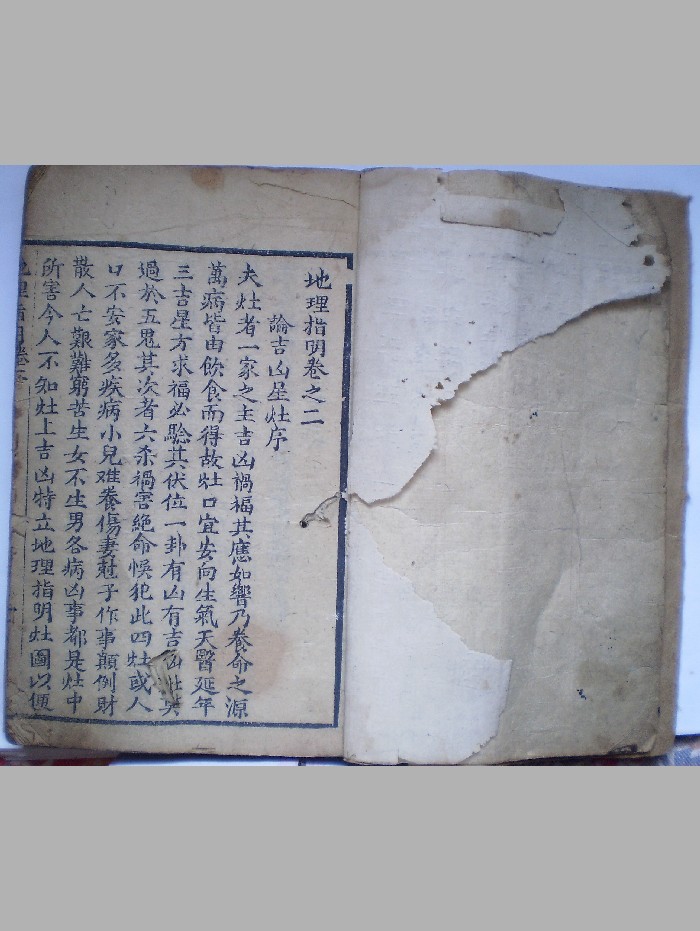 地理指明卷之二
論吉凶星灶序
夫灶者一家之主吉凶禍福其應如響乃養命之源
萬病皆由飲食而得故灶口宜安向生氣天醫延年
三吉星方求福必驗其伏位一卦有凶有吉凶
過於五鬼其次者六杀禍害絕命悞犯此四灶或人
口不安家多疾病小兒难養傷妻尅子作事顛倒財
散人亡艱難窮苦生女不生男各病凶事都是灶中
所害今人不知灶上吉凶特立地理指明灶圖以便
地理指明卷